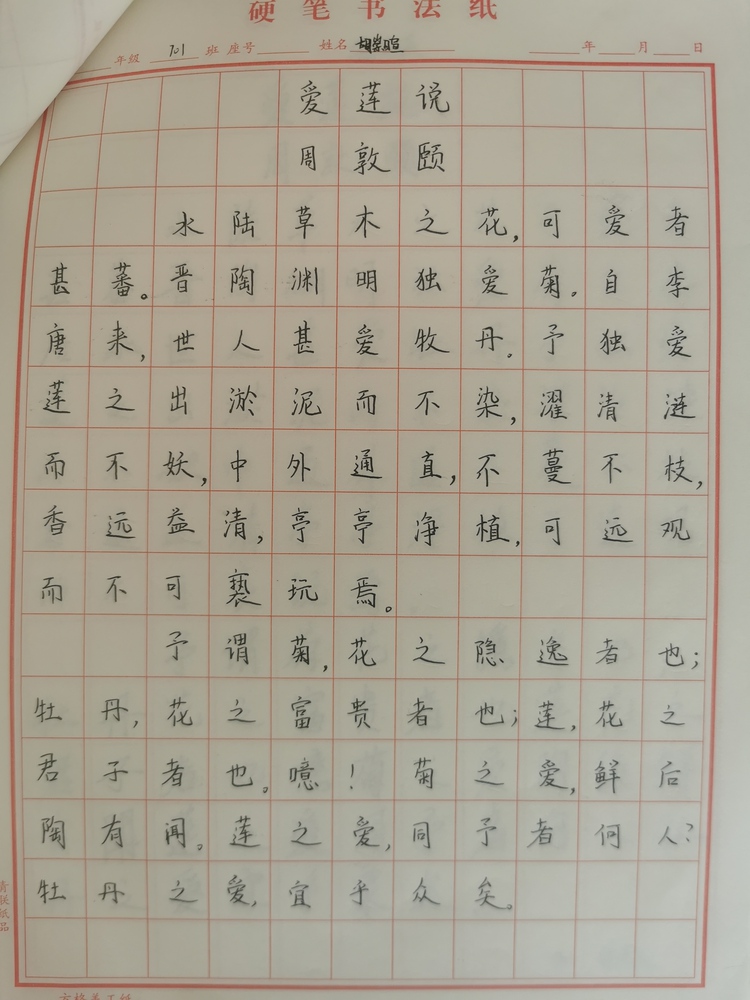 硬笔书法纸
年级 701 班 座号 姓名 年 月 日
爱莲说
周敦颐
水陆草木之花,可爱者
甚蕃。晋陶渊明独爱菊。自李
唐来,世人甚爱牧丹。予独爱
莲之出淤泥而不染,濯清涟
而不妖,中外通直,不蔓不枝,
香远益清,亭亭净植,可远观
而不可亵玩焉。
予谓菊,花之隐逸者也;
牡丹,花之富贵者也;莲,花之
君子者也。噫!菊之爱,鲜后
陶有闻。莲之爱,同予者何人?
牡丹之爱,宜乎众矣。